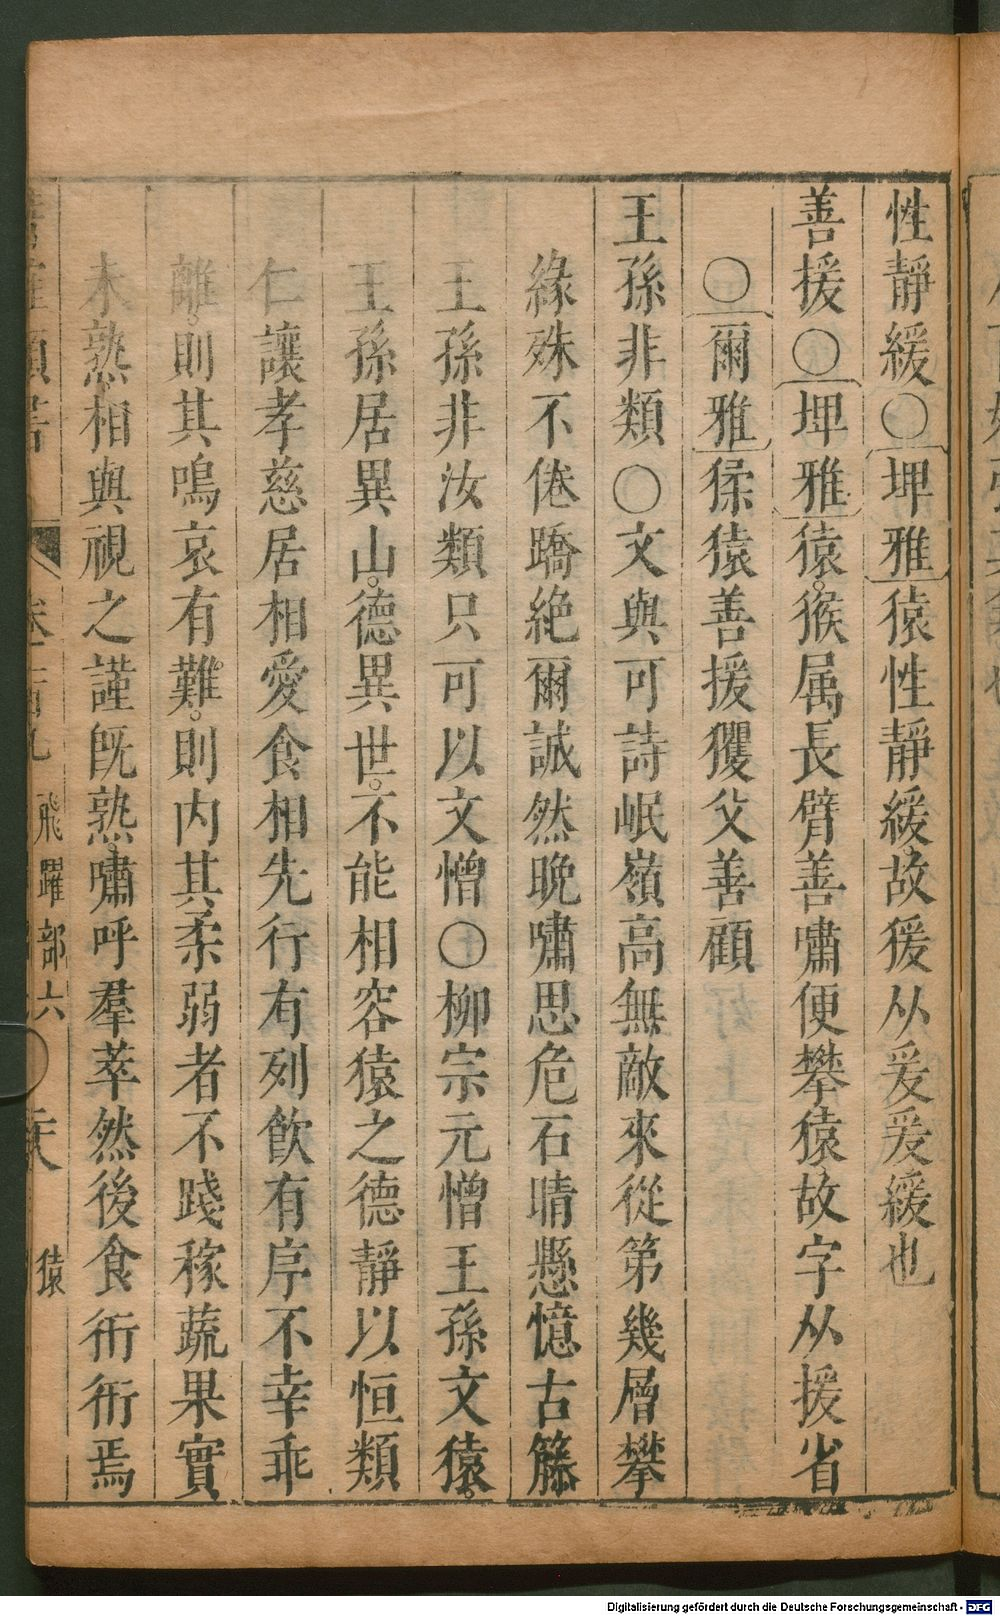 性靜緩○埤雅猿性靜緩故猨从爰爰緩也
善援○埤雅猿猴属長臂善嘯便攀猿故字从援省
○爾雅猱猿善援玃父善顧
王孫非類○文與可詩岷嶺高無敵來從第幾層攀
緣殊不倦蹻絶爾誠然晚嘯思危石晴懸憶古籐
王孫非汝類只可以文憎○柳宗元憎王孫文猿。
王孫居異山。德異世。不能相容猿之德靜以恒類
仁讓孝慈居相愛食相先行有列飲有序不幸乖
離。則其鳴哀有難。則内其柔弱者不踐稼蔬果實
未熟相與視之謹旣熟。嘯呼羣萃然後食衎衎焉
飛躍部六 ○ 猿
Digitalisierung gefördert durch die Deutsche Forschungsgemeinschaft - DFG